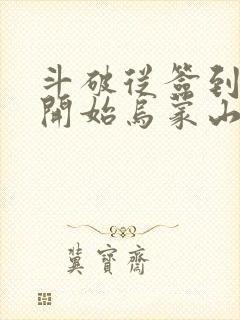 斗破従簽到
開始烏蒙山
冀寶齋